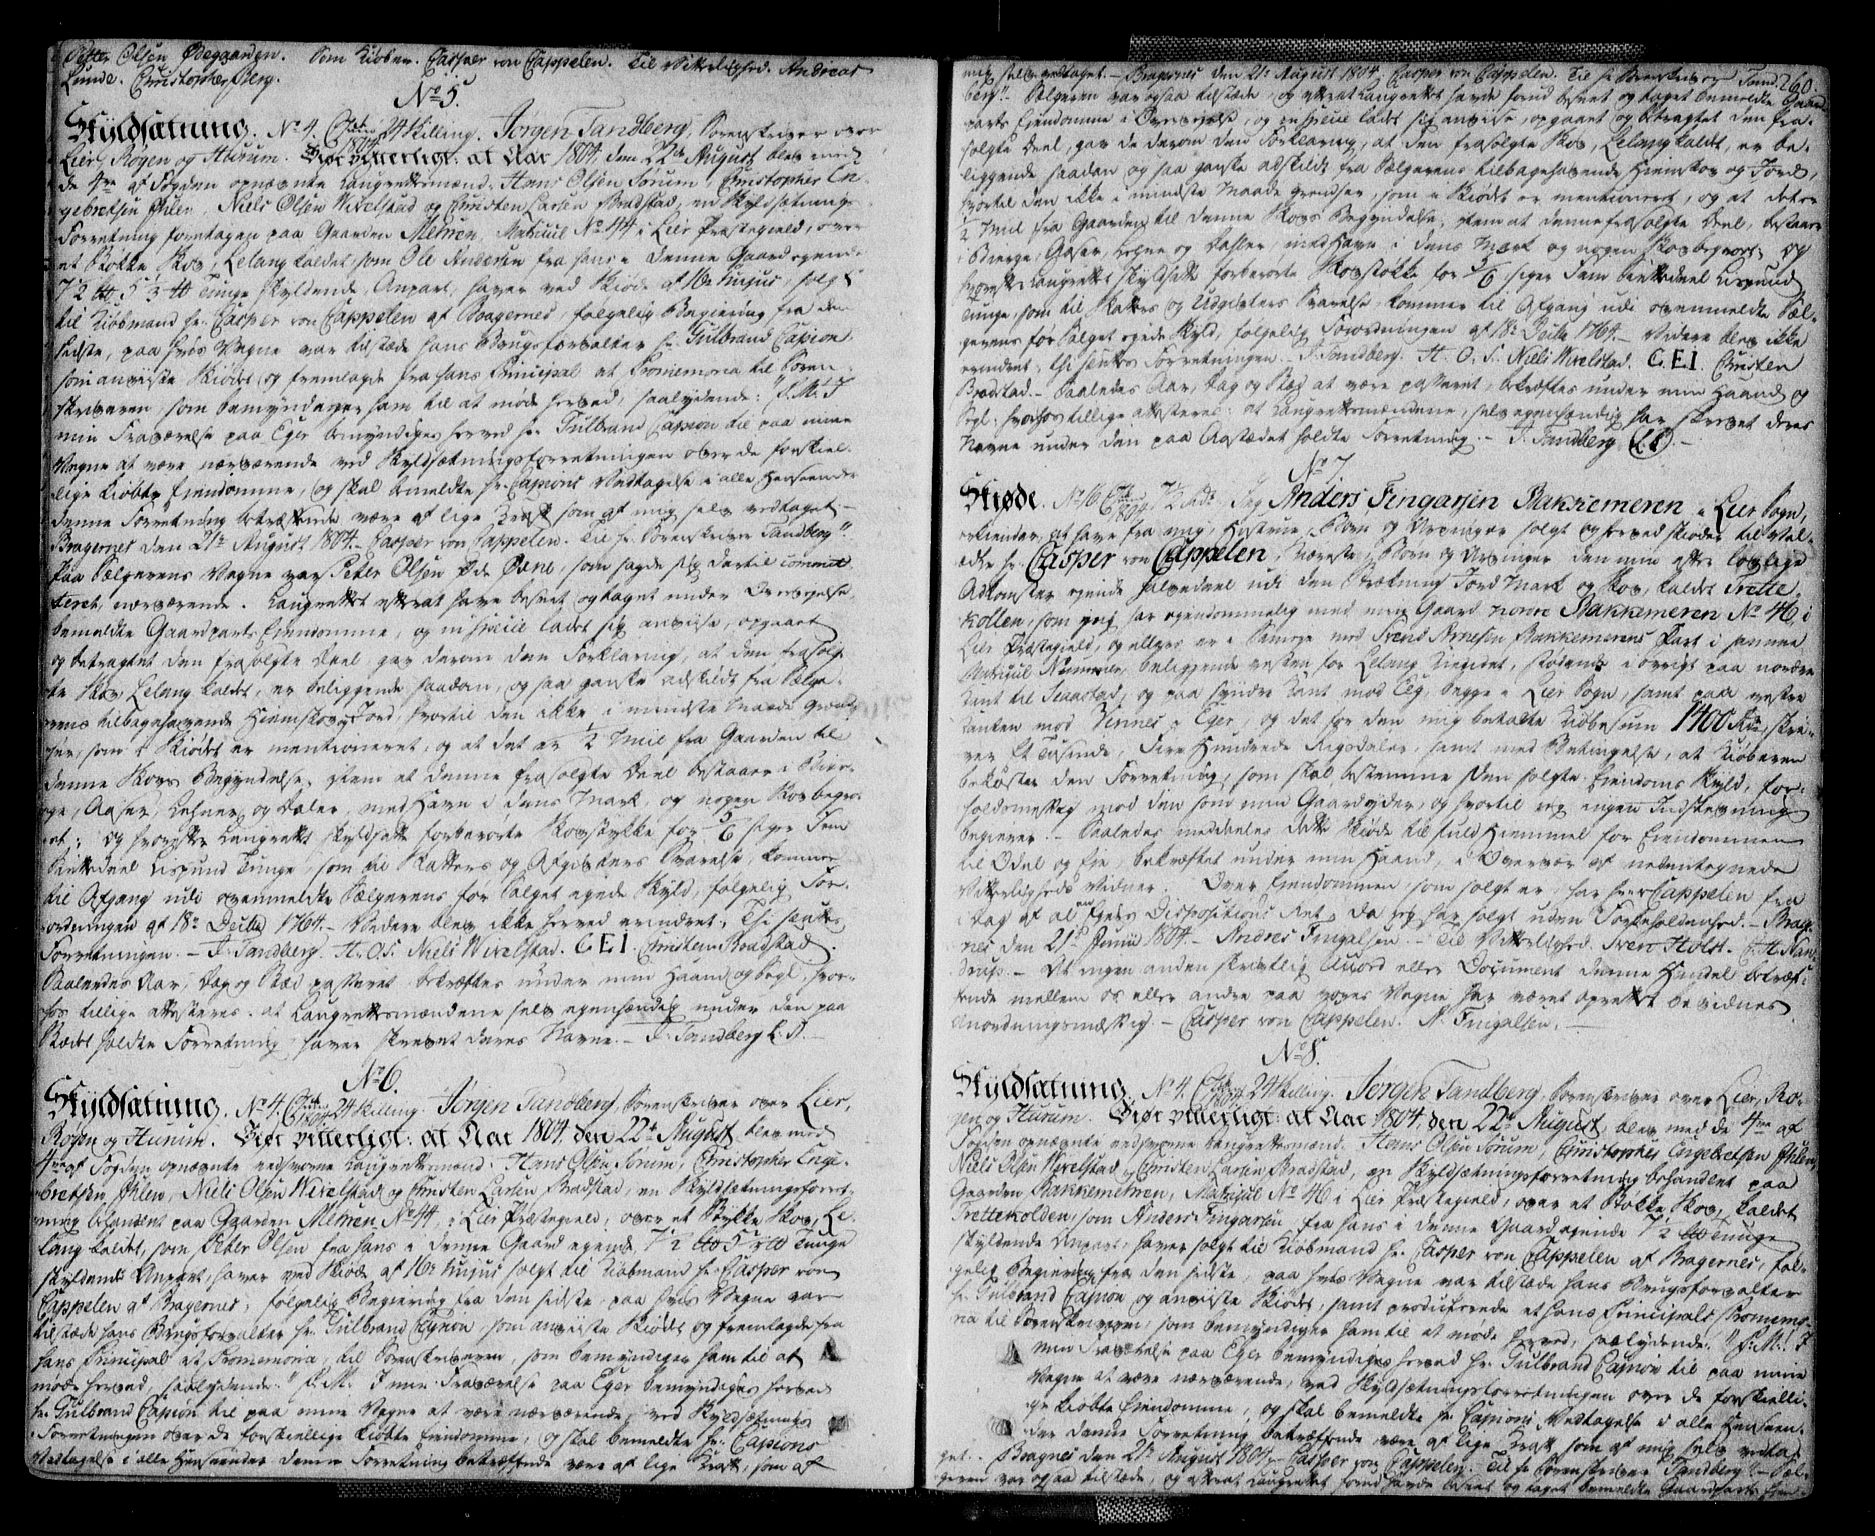 Petter Olsen Øegaarden. Som Kiøber. Casper von Cappelen. Til Vitterlighed. Andreas
Lunde. Christopher Berg.
No 5.
Skyldsætning. No 4. 24 Skilling. Jørgen Tandberg, Sorenskriver over
Lier, Røgen og Hurum. Giør vitterligt: at Aar 1804 den 22de August blev med
de 4re af Fogden opnævnte Laugrettesmænd: Hans Olsen Sørum, Christopher En-
gebretsen Ihlen, Niels Olsen Wivelstad og Christen Larsen Bradstad, en Skyldsætnings-
Forretning foretagen paa Gaarden Mehren, Matricul No 44 i Lier Præstegield, over
et Støkke Skov, Lelang kaldet, som Ole Andersen fra hans i denne Gaard eyende
7½ # 5 3/4 # Tunge skyldende Anpart, haver ved Skiøde af 16de hujus, solgt
til Kiøbmand Hr. Casper von Cappelen af Bragernes, følgelig Begiering fra den
sidste, paa hvis Vegne var tilstæde hans Brugsforvalter Hr. Gulbrand Capion,
som anviiste Skiødet og fremlagde fra hans Principal et Promemoria til Soren-
skriveren som bemyndiger ham til at møde herved, saalydende: "P.M. I
min Fraværelse paa Eger bemyndiges herved Hr. Gulbrand Capion til paa mine
Vegne at være nærværende ved Skyldsætningsforretningen over de forskiel-
lige kiøbte Eiendomme, og skal bemeldte Hr. Capions Vedtagelse i alle Henseender
denne Forretning betræffende være af lige Kraft som af mig selv vedtaget –
Bragernes den 21de August 1804. – Casper von Cappelen. Til Hr. Sorenskriver Tandberg".
Paa Sælgerens Vegne var Peter Olsen Øde Øene, som sagde sig dertil commit-
teret, nærværende. Laugrettet efterat have beseet og taget under Overveyelse
bemeldte Gaardparts Eiendomme, og in specie ladet sig anviise, opgaaet
og betragtet den frasolgte Deel, gav derom den Forklaring, at den frasolg-
te Skov, Lelang kaldet, er beliggende saadan, og saa ganske adskildt fra Sælge-
rens tilbagehavende Hiemskov og Jord, hvortil den ikke i mindste Maade grænd-
ser, som i Skiødet er mentioneret, og at det er ½ Miil fra Gaarden til
denne Skovs Begyndelse, item at denne frasolgte Deel bestaaer i Bier-
ge, Aaser, Lehner og Daler, med Havn i dens Mark, og nogen Skovbegro-
et; og hvorefter Laugrettet skyldsatte forberørte Skovstykke for 5/6 siger Fem
Siettedeel Lispund Tunge, som til Skatters og Afgifters Svarelse, kommer
til Afgang udi ovenmeldte Sælgerens før Salget eyede Skyld, følgelig For-
ordningen af 18de Decbr 1764. – Videre blev ikke herved erindret, thi sluttes
Forretningen. – J. Tandberg. H. O. S. Niels Wivelstad. C E I. Christen Bradstad.
Saaledes Aar, Dag og Sted passeret bekræftes under min Haand og Segl, hvor-
hos tillige attesteres: at Laugrettesmændene selv egenhændig under den paa
Stædet holdte Forretning haver skrevet deres Navne. – J. Tandberg L. S. –
No 6.
Skyldsætning. No 4. 24 Skilling. Jørgen Tandberg, Sorenskriver over Lier,
Røgen og Hurum. Giør vitterligt: at Aar 1804 den 22de August blev med
4re af Fogden opnævnte eedsvorne Laugrettesmænd: Hans Olsen Sørum, Christopher Enge-
bretsen Ihlen, Niels Olsen Wivelstad og Christen Larsen Bradstad, en Skyldsætningsforret-
ning behandlet paa Gaarden Mehren, No 44, i Lier Præstegield, over et Stykke Skov, Le-
lang kaldet, som Peter Olsen fra hans i denne Gaard eyende 7½ # 5 3/4 # Tunge
skyldende Anpart, haver ved Skiøde af 16de hujus solgt til Kiøbmand Hr. Casper von
Cappelen af Bragernes, følgelig Begiering fra den sidste, paa hvis Vegne var
tilstæde hans Brugsforvalter Hr. Gulbrand Capion, som anviiste Skiødet og fremlagde fra
hans Principal et Promemoria, til Sorenskriveren, som bemyndiger ham til at
møde herved, saalydende: "P.M. I min Fraværelse paa Eger bemyndiges herved
Hr. Gulbrand Capion til paa mine Vegne at være nærværende ved Skyldsætnings
Forretningen over de forskiellige kiøbte Eiendomme, og skal bemeldte Hr. Capions
Vedtagelse i alle Henseender denne Forretning betræffende være af lige Kraft, som af
mig selv vedtaget. – Bragernes den 21de August 1804. Casper von Cappelen. Til Hr. Sorenskriver Tand- 260.
berg". – Sælgeren var ogsaa tilstæde, og efterat Laugrettet havde forud beseet og taget bemeldte Gaard-
parts Eiendomme i Overveyelse, og in specie ladet sig anviise, opgaaet og betragtet den fra-
solgte Deel, gav de derom den Forklaring, at den frasolgte Skov, Lelang kaldet, er be-
liggende saadan og saa ganske adskildt fra Sælgerens tilbagehavende Hiemskov og Jord,
hvortil den ikke i mindste Maade grendser, som i Skiødet er mentioneret, og at det er
½ Miil fra Gaarden til denne Skovs Begyndelse, item at denne frasolgte Deel, bestaaer
i Bierge, Aaser, Lehner og Daler, med Havn i dens Mark og nogen Skovbegroet; og
hvorefter Laugrettet skyldsatte forberørte Skovstøkke for 5/6 siger Fem Siettedeel Lispund
Tunge, som til Skatters og Udgifters Svarelse kommer til Afgang udi ovenmeldte Sæl-
gerens før Salget eyede Skyld, følgelig Forordningen af 18de Decbr 1764. – Videre blev ikke
erindret, thi sluttes Forretningen. J. Tandberg. H. O. S. Niels Wivelstad. C E I. Christen
Bradstad. – Saaledes Aar, Dag og Sted at være passeret, bekræftes under min Haand og
Segl; hvorhos tillige attesteres: at Laugrettesmændene selv egenhændig har skrevet deres
Navne under den paa Aastædet holdte Forretning. – J. Tandberg (LS) –
No 7.
Skiøde. No 16 7½ Rdr. Jeg Anders Fingarsen Bakkemeren i Lier Sogn,
erkiender, at have fra mig, Hustrue, Børn og Arvinger solgt og herved skiøder til Vel-
ædle Hr. Casper von Cappelen, kiæreste, Børn og Arvinger den min efter lovlige
Adkomster eyende halvedeel udi den Strækning Jord Mark og Skov, kaldet Trette-
kollen, som jeg har eyendommelig med min Gaard nordre Bakkemeren No 46 i
Lier Præstegield, og ellers er i Sameye med Svend Arnesen Bakkemerens Part i samme
Matricul Nummer, beliggende vesten for Lelang Kiegidet, stødende i øvrigt paa nordre
Kant til Staastad, og paa syndre Kant mod Eeg, begge i Lier Sogn, samt paa vestre
Kanten mod Vinnes i Eger, og det for den mig betalte Kiøbesum 1400 Rdr, skri-
ver Et Tusinde, Fire Hundrede Rigsdaler, samt med Betingelse, at Kiøberen
bekoster den Forretning, som skal bestemme den solgte Eiendoms Skyld, for-
holdsmessig mod den som min Gaard eyder, og hvortil jeg ingen Indstevning
begierer. – Saaledes meddeeles dette Skiøde til fuld Hiemmel for Eiendommen
til Odel og Eie, bekræftet under min Haand, i Overvær af nedentegnede
Vitterligheds Vidner. Over Eiendommen, som solgt er, har Herr Cappelen fra
i Dag af al Eyeds Dispositions Ret, da jeg har solgt uden Forbeholdenhed. – Brag-
nes den 21de Junii 1804. – Andres Fingalsen. – Til Vitterlighed. Iver Holst. C. H. Stan-
drup. – At ingen anden skriftlig Accord eller Document denne Handel betræf-
fende mellem os eller andre paa vores Vegne har været oprettet bevidnes
anordningsmæssig. – Casper von Cappelen. A. Fingalsen. –
No 8.
Skyldsætning. No 4. 24 Skilling. Jørgen Tandberg, Sorenskriver over Lier, Rø-
gen og Hurum. Giør vitterligt: at Aar 1804, den 22de August, blev med de 4re af
Fogden opnævnte eedsvorne Laugrettesmænd: Hans Olsen Sørum, Christopher Engebretsen Ihlen,
Niels Olsen Wivelstad og Christen Larsen Bradstad, en Skyldsætningsforretning behandlet paa
Gaarden Bakkemehren, Matricul No 46 i Lier Præstegield, over et Støkke Skov, kaldet
Trettekolden, som Anders Fingarsen fra hans i denne Gaard eyende 7½ # Tunge
skyldende Anpart, haver solgt til Kiøbmand Hr. Casper von Cappelen af Bragernes, føl-
gelig Begiering fra den sidste, paa hvis Vegne var tilstæde hans Brugsforvalter
Hr. Gulbrand Capion og anviiste Skiødet, samt producerede et hans Principals Promemo-
ria til Sorenskriveren, som bemyndiger ham til at møde herved, saalydende: "P.M. I
min Fraværelse paa Eger bemyndiges herved Hr. Gulbrand Capion til paa mine
Vegne at være nærværende, ved Skyldsætningsforretningen over de forskielli-
ge kiøbte Eiendomme, og skal bemeldte Hr. Capions Vedtagelse i alle Henseen-
der denne Forretning betræffende være af lige Kraft som af mig selv vedta-
get. – Bragnes den 21de August 1804. – Casper von Cappelen. Til Hr. Sorenskriver Tandberg". – Sæl-
geren var ogsaa tilstæde, og efterat Laugrettet forud havde beseet og taget bemeldte Gaardparts Eien-